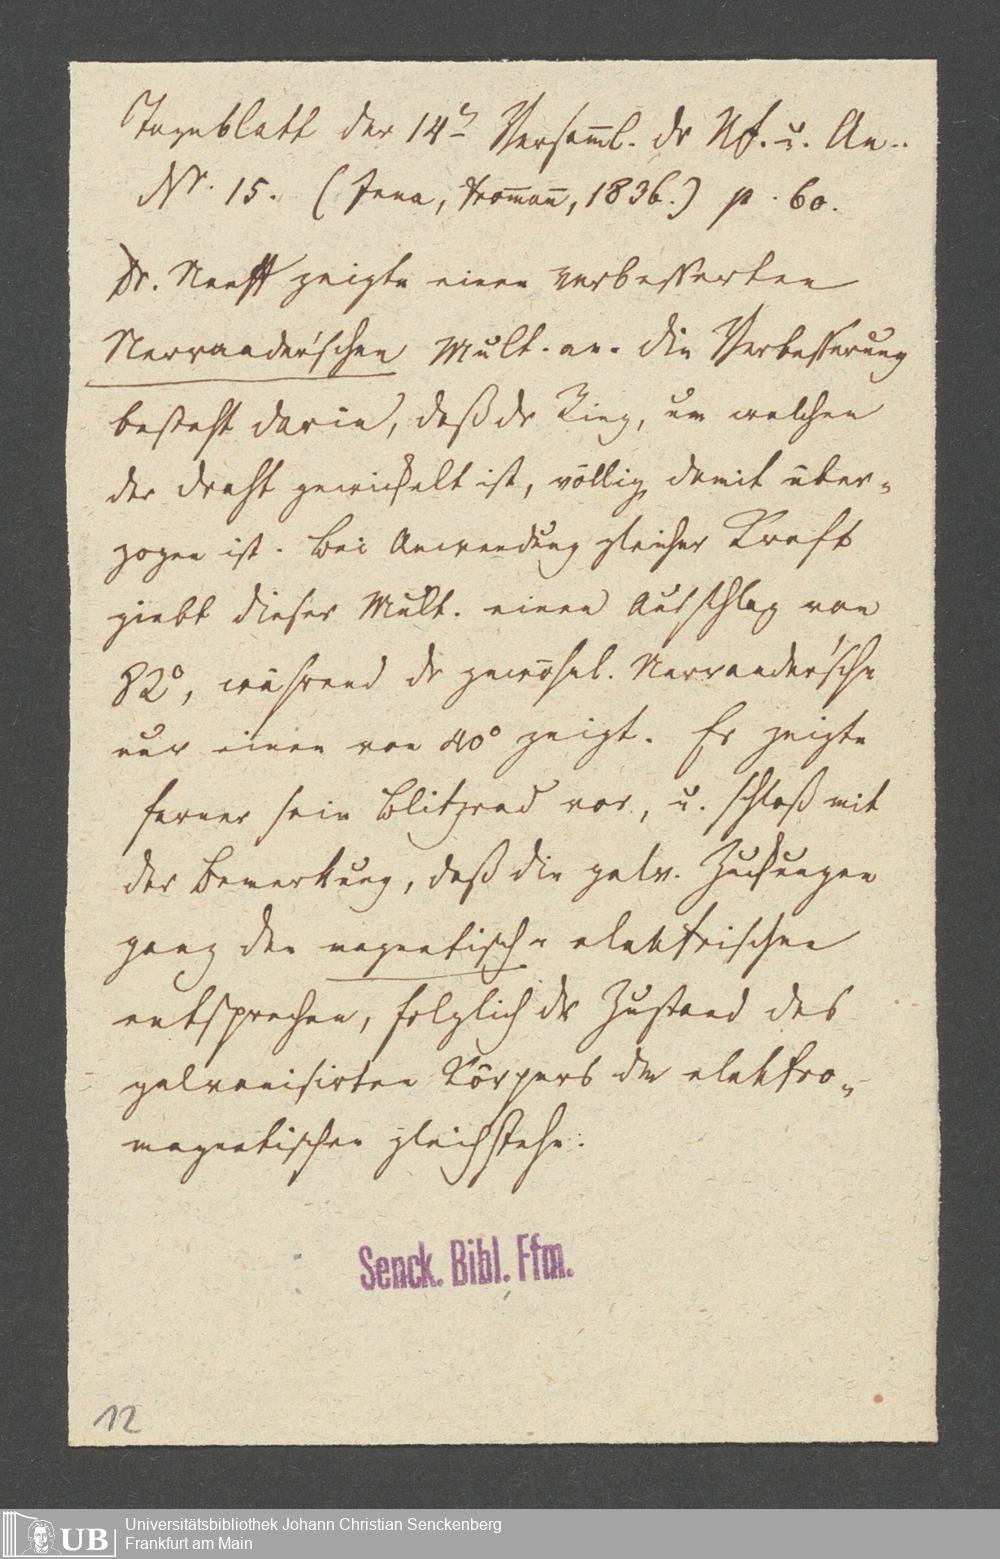 Tageblatt der 14ᵗ Versam̅l. dr Nf. u. Ae..
Nr. 15. (Jena, From̅an̅, 1836.) p. 60.
Dr. Neeff zeigte einen verbesserten
Nervander'schen Mult. an. Die Verbesserung
besteht darin, daß dr Ring, um welchen
der Draht gewickelt ist, völlig damit über-
zogen ist. Bei Anwendung gleicher Kraft
giebt dieser Mult. einen Ausschlag von
82°, während dr gewöhnl. Nervander'sche
nur einen von 40° zeigt. Er zeigte
ferner sein Blitzrad vor, u. schloß mit
der Bemerkung, daß die galv. Zuckungen
ganz den magnetisch-elektrischen
entsprechen, folglich dr Zustand des
galvanisirten Körpers dm elektro-
magnetischen gleichstehe.
Senck. Bibl. Ffm.
12
UB
Universitätsbibliothek Johann Christian Senckenberg
Frankfurt am Main